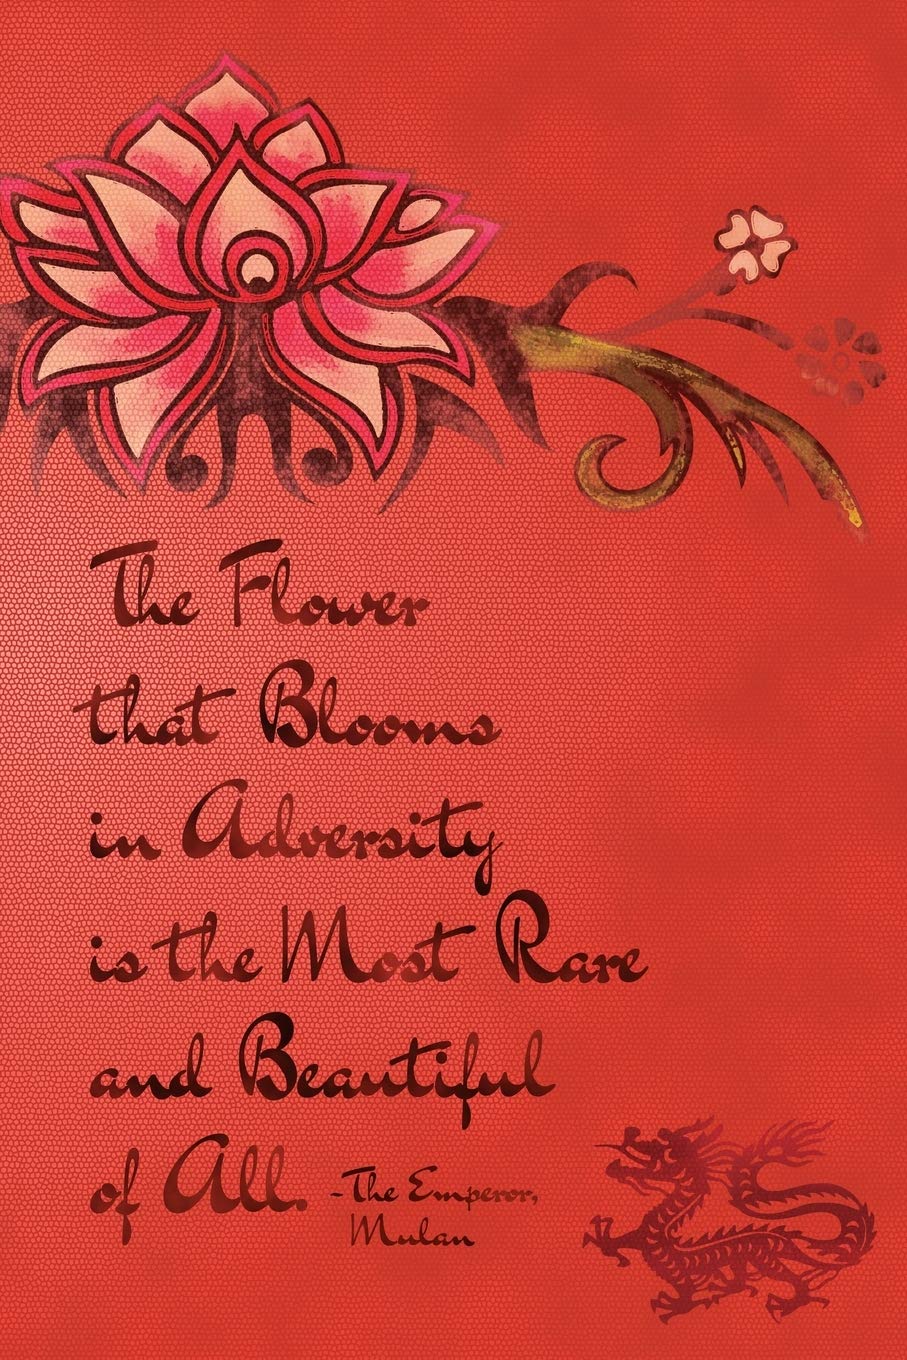 The Flower
that Blooms
in Adversity
is the Most Rare
and Beautiful
of All. -The Emperor,
Mulan